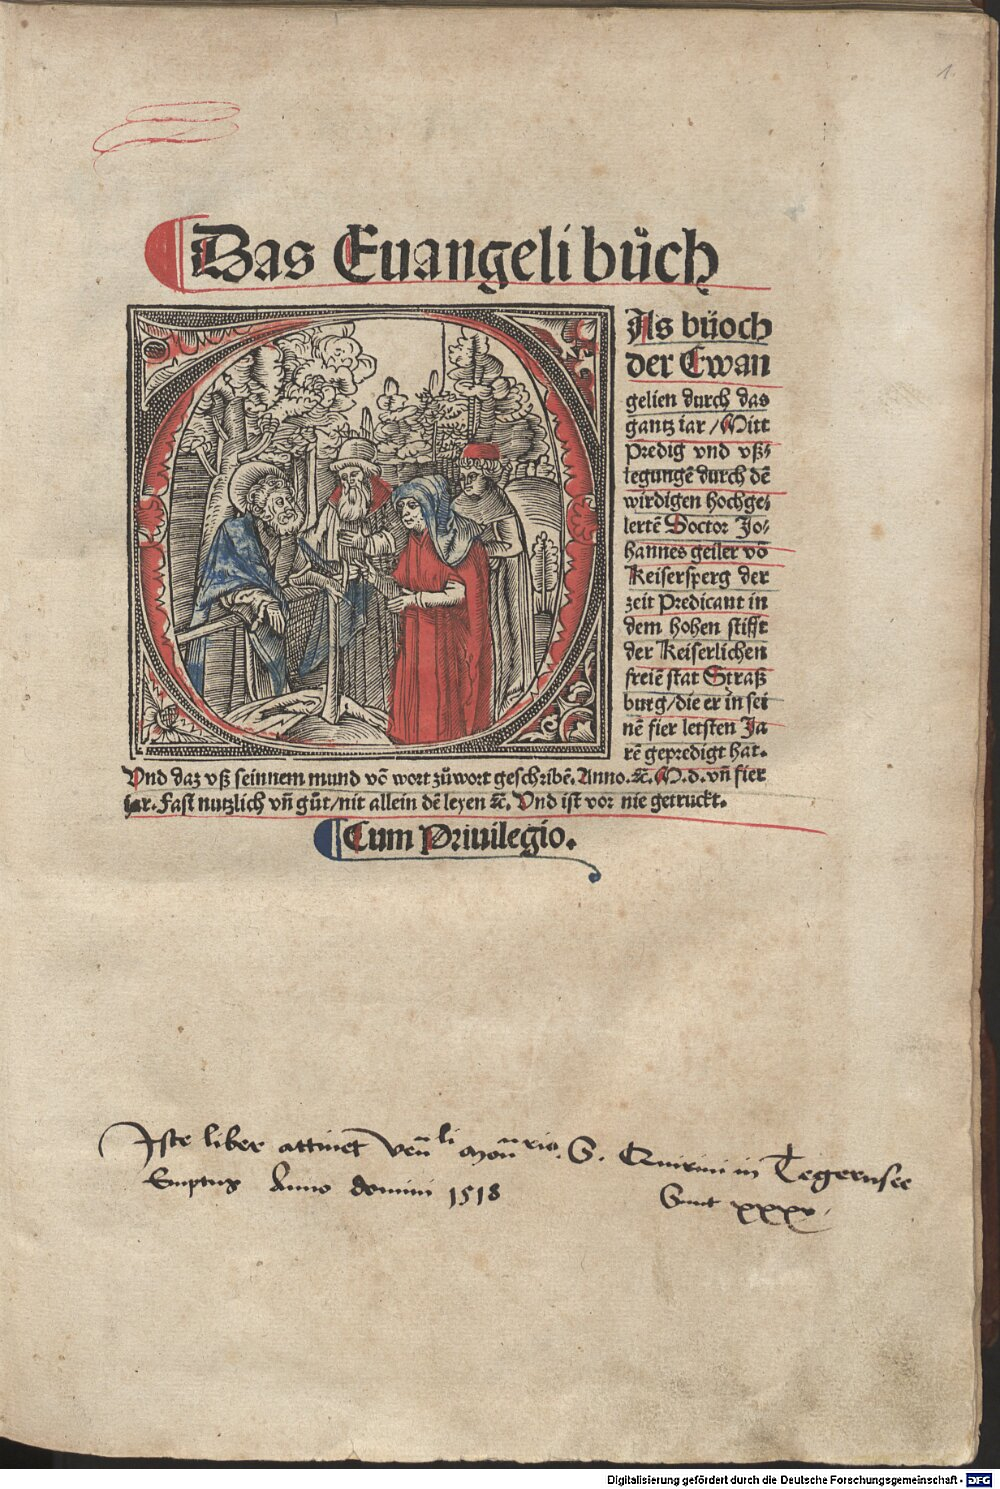 1.
Das Euangelibůch
As bůoch
der Ewan
gelien durch das
gantz iar / Mitt
Predig vnd vß⸗
legungē durch dē
wirdigen hochge⸗
lertē Doctor Jo⸗
hannes geiler vō
Keisersperg der
zeit Predicant in
dem hohen stifft
der Keiserlichen
freiē stat Straß
burg / die er in sei
nē fier letsten Ja
rē gepredigt hat.
Vnd daz vß seinnem mund vō wort zůwort geschribē. Anno. ⁊c. M. d. vn̄ fier
iar. Fast nutzlich vn̄ gůt / nit allein dē leyen ⁊c. Vnd ist vor nie getruckt.
Cum Priuilegio.
Iste liber attinet S. Quirini in Tegernsee
Emptus Anno domini 1518
xxxv
Digitalisierung gefördert durch die Deutsche Forschungsgemeinschaft - DFG